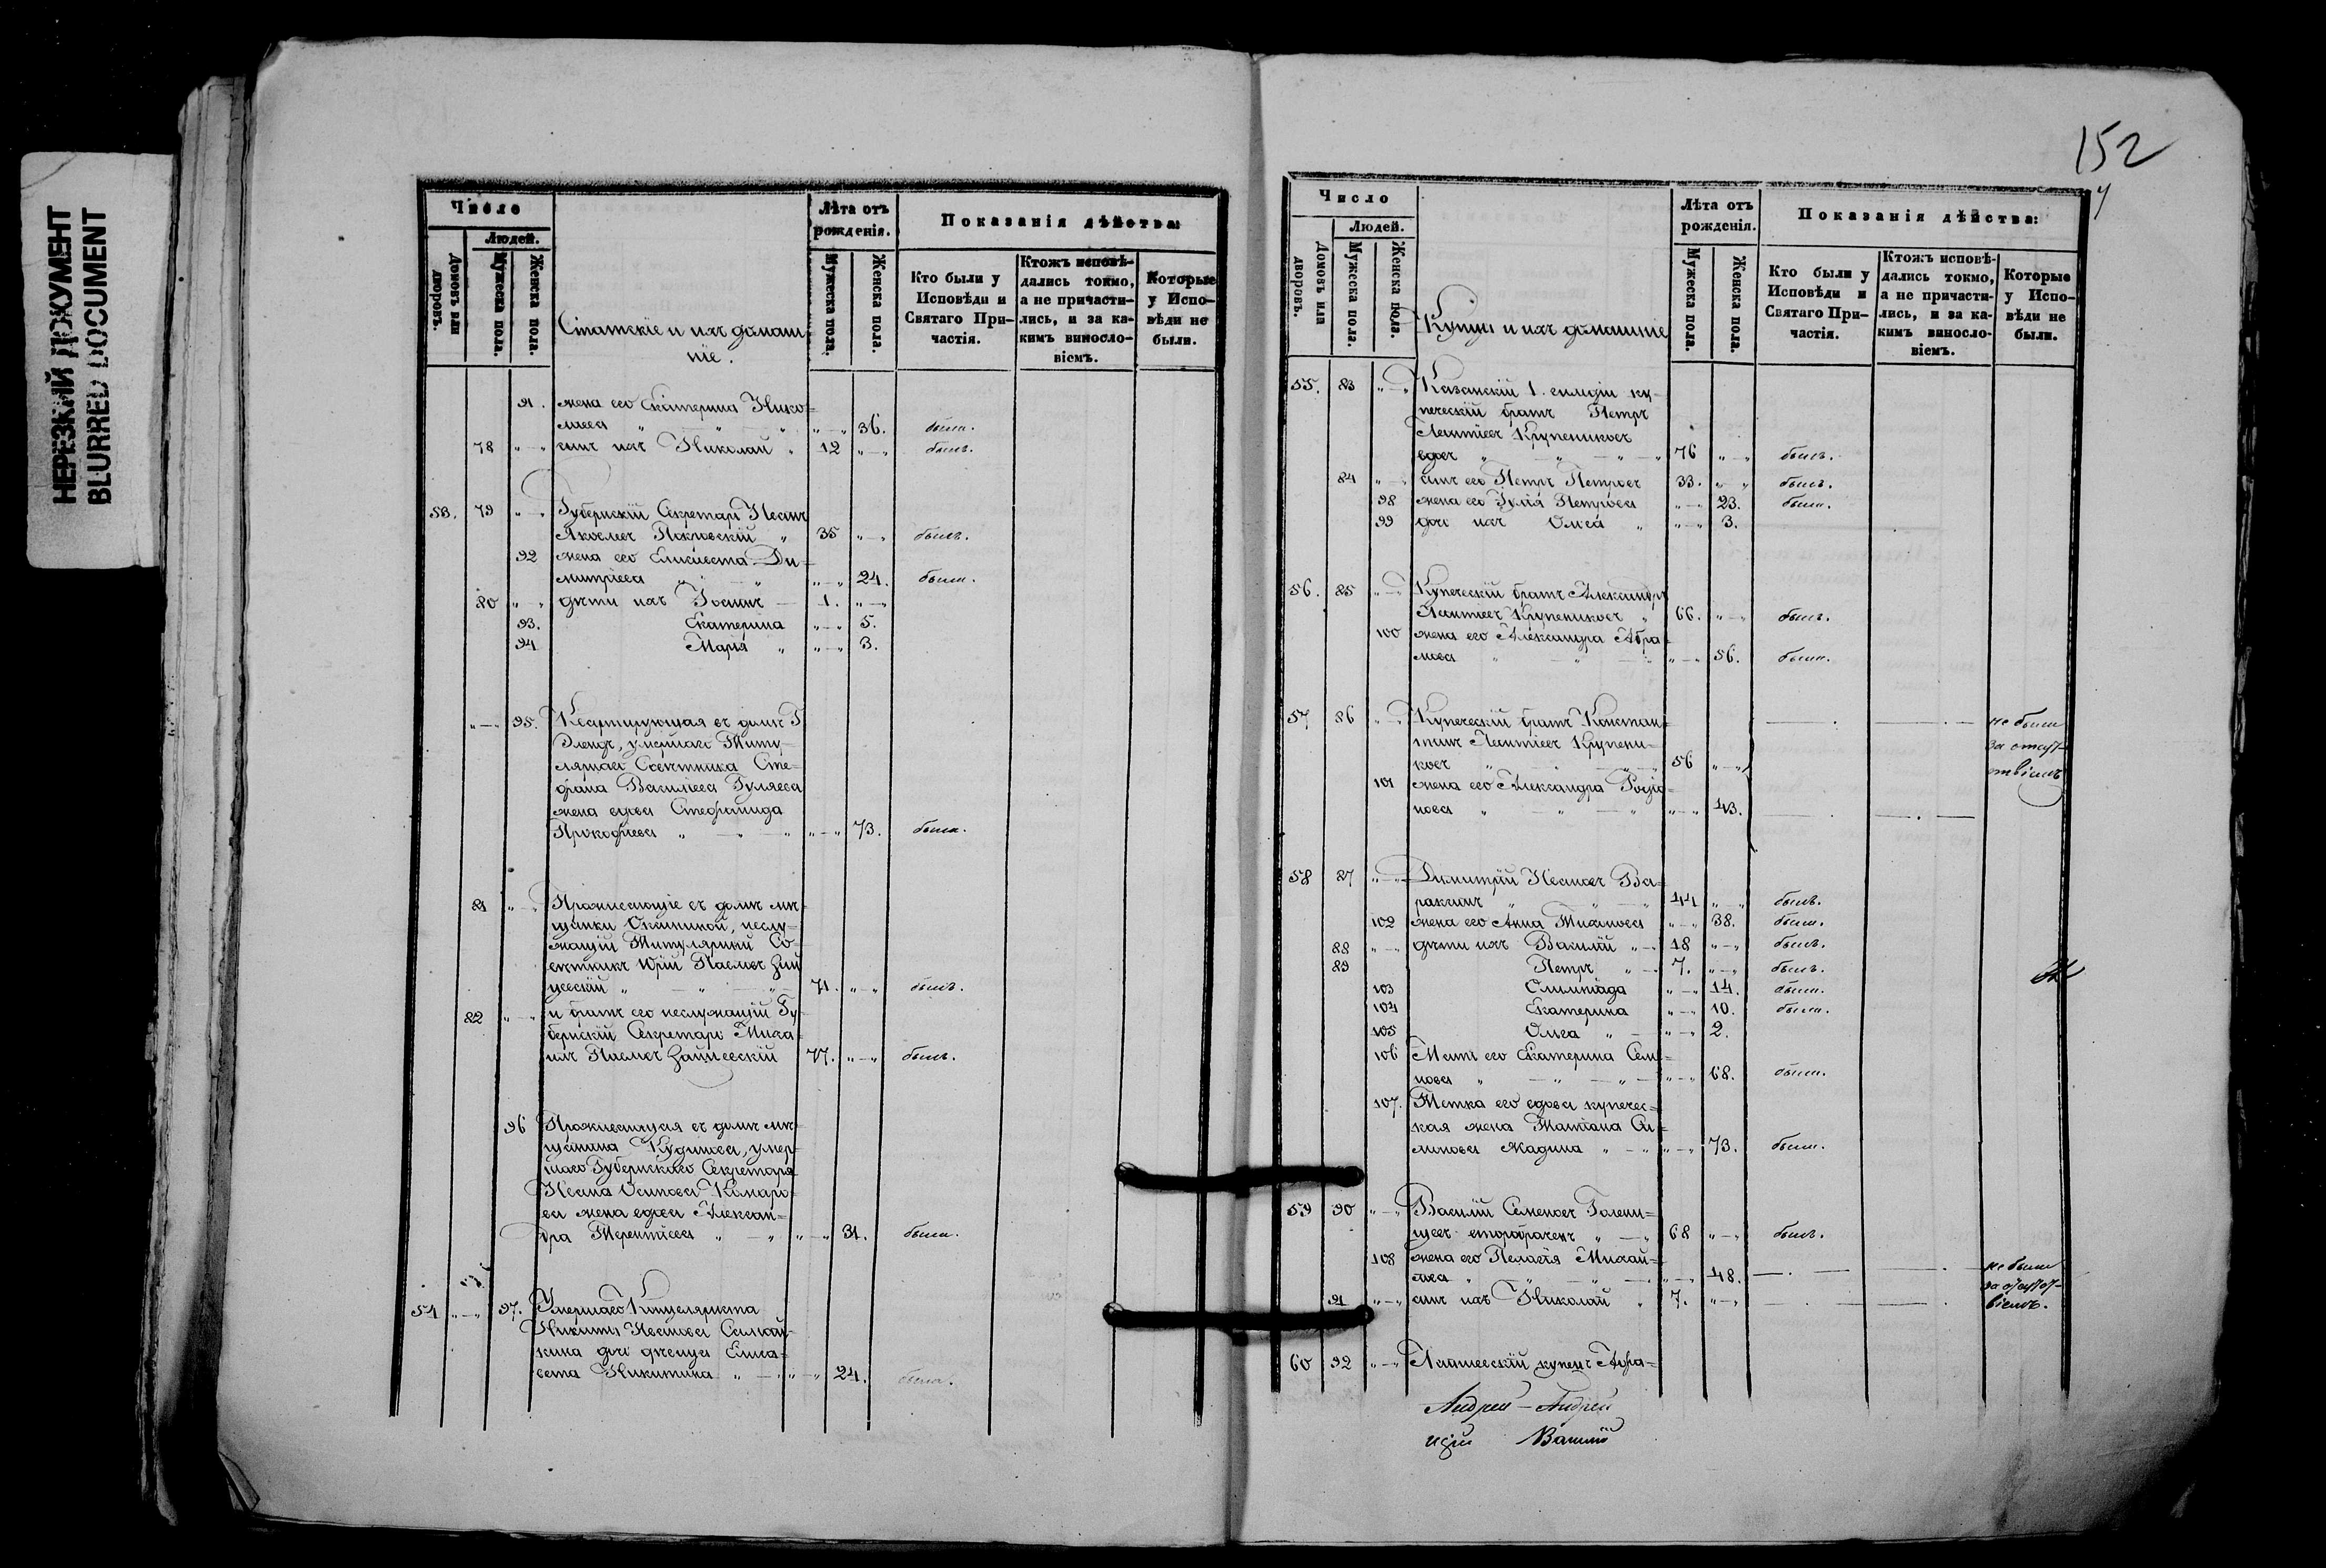 НЕРЕЗКИЙ ДОКУМЕНТ
BLURRED DOCUMENT
Число
Людей.
Домовъ или дворовъ.
Мужеска пола.
Женска пола.
Статскіе и ихъ домаш
ніе.
Лѣта отъ
рожденія.
Мужеска пола.
Женска пола.
Показанія дѣйства:
Кто были у
Исповѣди и
Святаго При-
частія.
Ктожъ исповѣ-
дались токмо,
а не причасти-
лись, и за ка-
кимъ виносло-
віемъ.
Которые
у Испо-
вѣди не
были.
91. жена его Екатерина Нико=
лаева „ — „ — „ „—„ 36. была.
78 „—„ сынъ ихъ Николай „ 12 „—„ былъ.
53. 79 „—„ Губернскій Секретарь Иванъ
Яковлевъ Покровскій „ 35 „—„ былъ.
92 жена его Елисавета Ди-
митріева „ — „ „—„ 24. была.
80 „—„ дѣти ихъ Іоаннъ — 1. „—„
93. Екатерина „—„ 5.
94 Марія „ „—„ 3.
„—„ 95. Квартирующая въ домѣ Г
умершаго Титу-
лярнаго Совѣтника Сте-
фана Васильева Гуляева
жена вдова Стефанида
Прокофьева „ — „ — „ „—„ 73. была.
81 „—„ Проживающіе въ домѣ мѣ-
щанки неслу-
жащій Титулярный Со-
вѣтникъ Юрій Павловъ
„ — „ — „ 71. „—„ былъ.
82 „—„ и братъ его неслужащій Гу-
бернскій Секретарь Миха-
илъ Павловъ 77. „—„ былъ.
96 Проживающая въ домѣ мѣ-
щанина Кудинова, умер-
шаго Губернскаго Секретаря
Ивана Осипова Комаро-
ва жена вдова Алексан=
дра Терентьева „ — „ „—„ 31. была.
54 „—„ 97. Умершаго Канцеляриста
Никиты Иванова
дочь дѣвица Елиса=
вета Никитина „ — „ „—„ 24. была.
152
Число
Людей.
Домовъ или дворовъ.
Мужеска пола.
Женска пола.
Купцы и ихъ домашніе
Лѣта отъ
рожденія.
Мужеска пола.
Женска пола.
Показанія дѣйства:
Кто были у
Исповѣди и
Святаго При-
частія.
Ктожъ исповѣ-
дались токмо,
а не причасти-
лись, и за ка-
кимъ виносло-
віемъ.
Которые
у Испо-
вѣди не
были.
55. 83 „—„ Казанскій 1. гильдіи ку-
печескій братъ Петръ
Леонтіевъ Крупениковъ
вдовъ „ — „ — „ 76 „—„ былъ.
84 „—„ сынъ его Петръ Петровъ 33. „—„ былъ.
98 жена его Юлія Петрова „—„ 23. была.
99 дочь ихъ Ольга „ „—„ 3.
56. 85 „—„ Купеческій братъ Александръ
Леонтіевъ Крупениковъ „ 66. „—„ былъ.
100 жена его Александра Абра-
мова „ — „ — „ „—„ 56. была.
57 86 „—„ Купеческій братъ Констан-
тинъ Леонтіевъ Крупени-
ковъ „ — „ — „ 56 „—„
не были
за отсут-
ствіемъ
101 жена его Александра Родіо-
нова „ — „ — „ „—„ 43.
58 87 „—„ Димитрій Ивановъ Ва-
ракинъ „ — „ — „ 44 „—„ былъ.
102 жена его Анна Михайлова „—„ 38. была.
88 „—„ дѣти ихъ Василій „—„ 18 „—„ былъ.
89 Петръ „—„ 7. „—„ былъ.
103 Олимпіада „—„ 14. была.
104 Екатерина „—„ 10. была.
105 Ольга „ — „—„ 2.
106 Мать его Екатерина Семе-
нова „ — „ — „ „—„ 68. была.
107. Тетка его вдова купечес=
кая жена Татіана Си-
монова „—„ „—„ 73. была.
59 90 „—„ Василій Семеновъ Голени-
щевъ второбраченъ „—„ 68 „—„ былъ.
108 жена его Пелагія Михай-
лова „ — „ — „ „—„ 48.
не были
за отсутст-
віемъ.
91 „—„ сынъ ихъ Николай „ 7. „—„
60 92 „—„ Лаишевскій купецъ Афа-
Андрей — Андрей
Василій